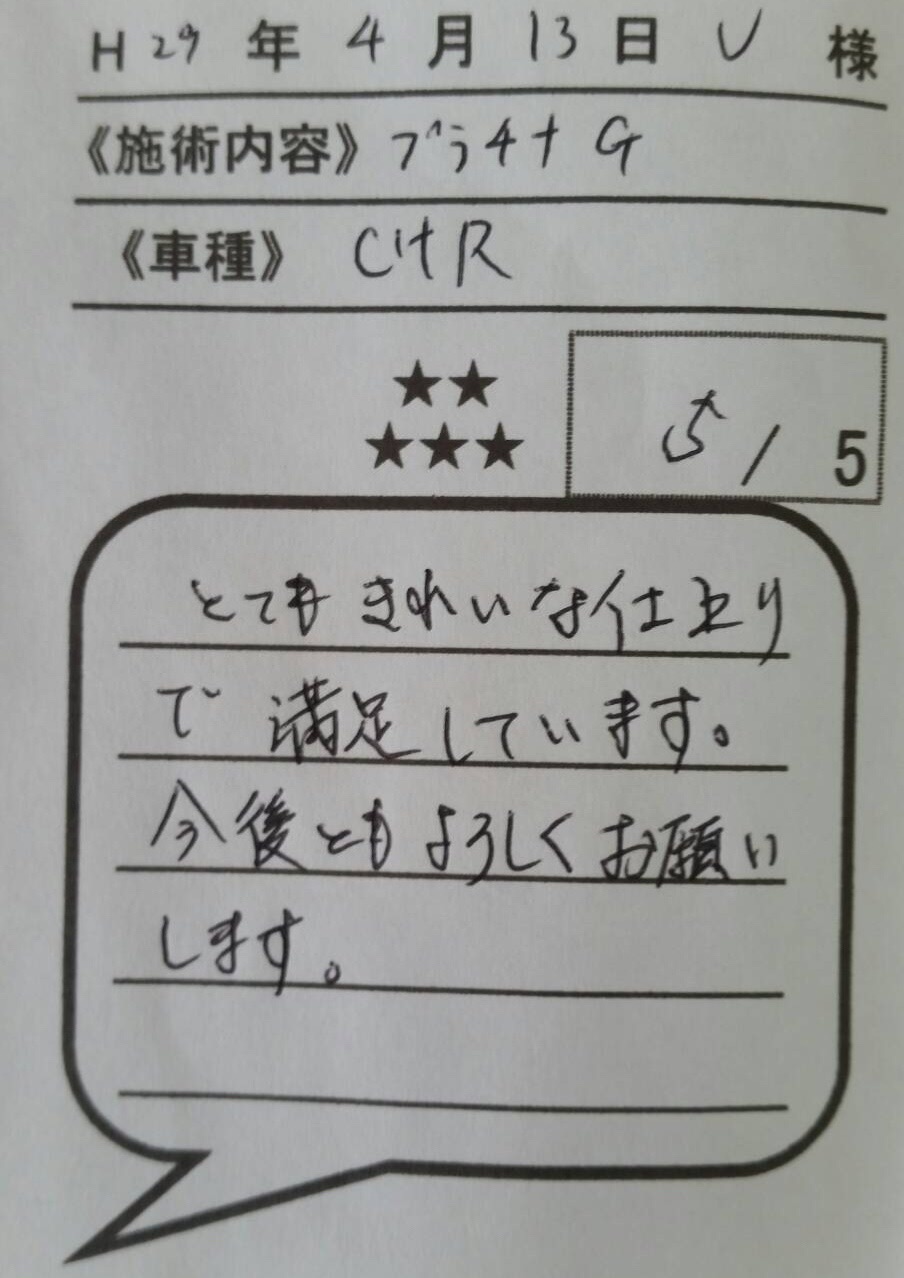 H29年4月13日 U 様
《施術内容》プラチナG
《車種》CHR
★★
★★★
5/5
とてもきれいな仕上り
で満足しています。
今後ともよろしくお願い
します。